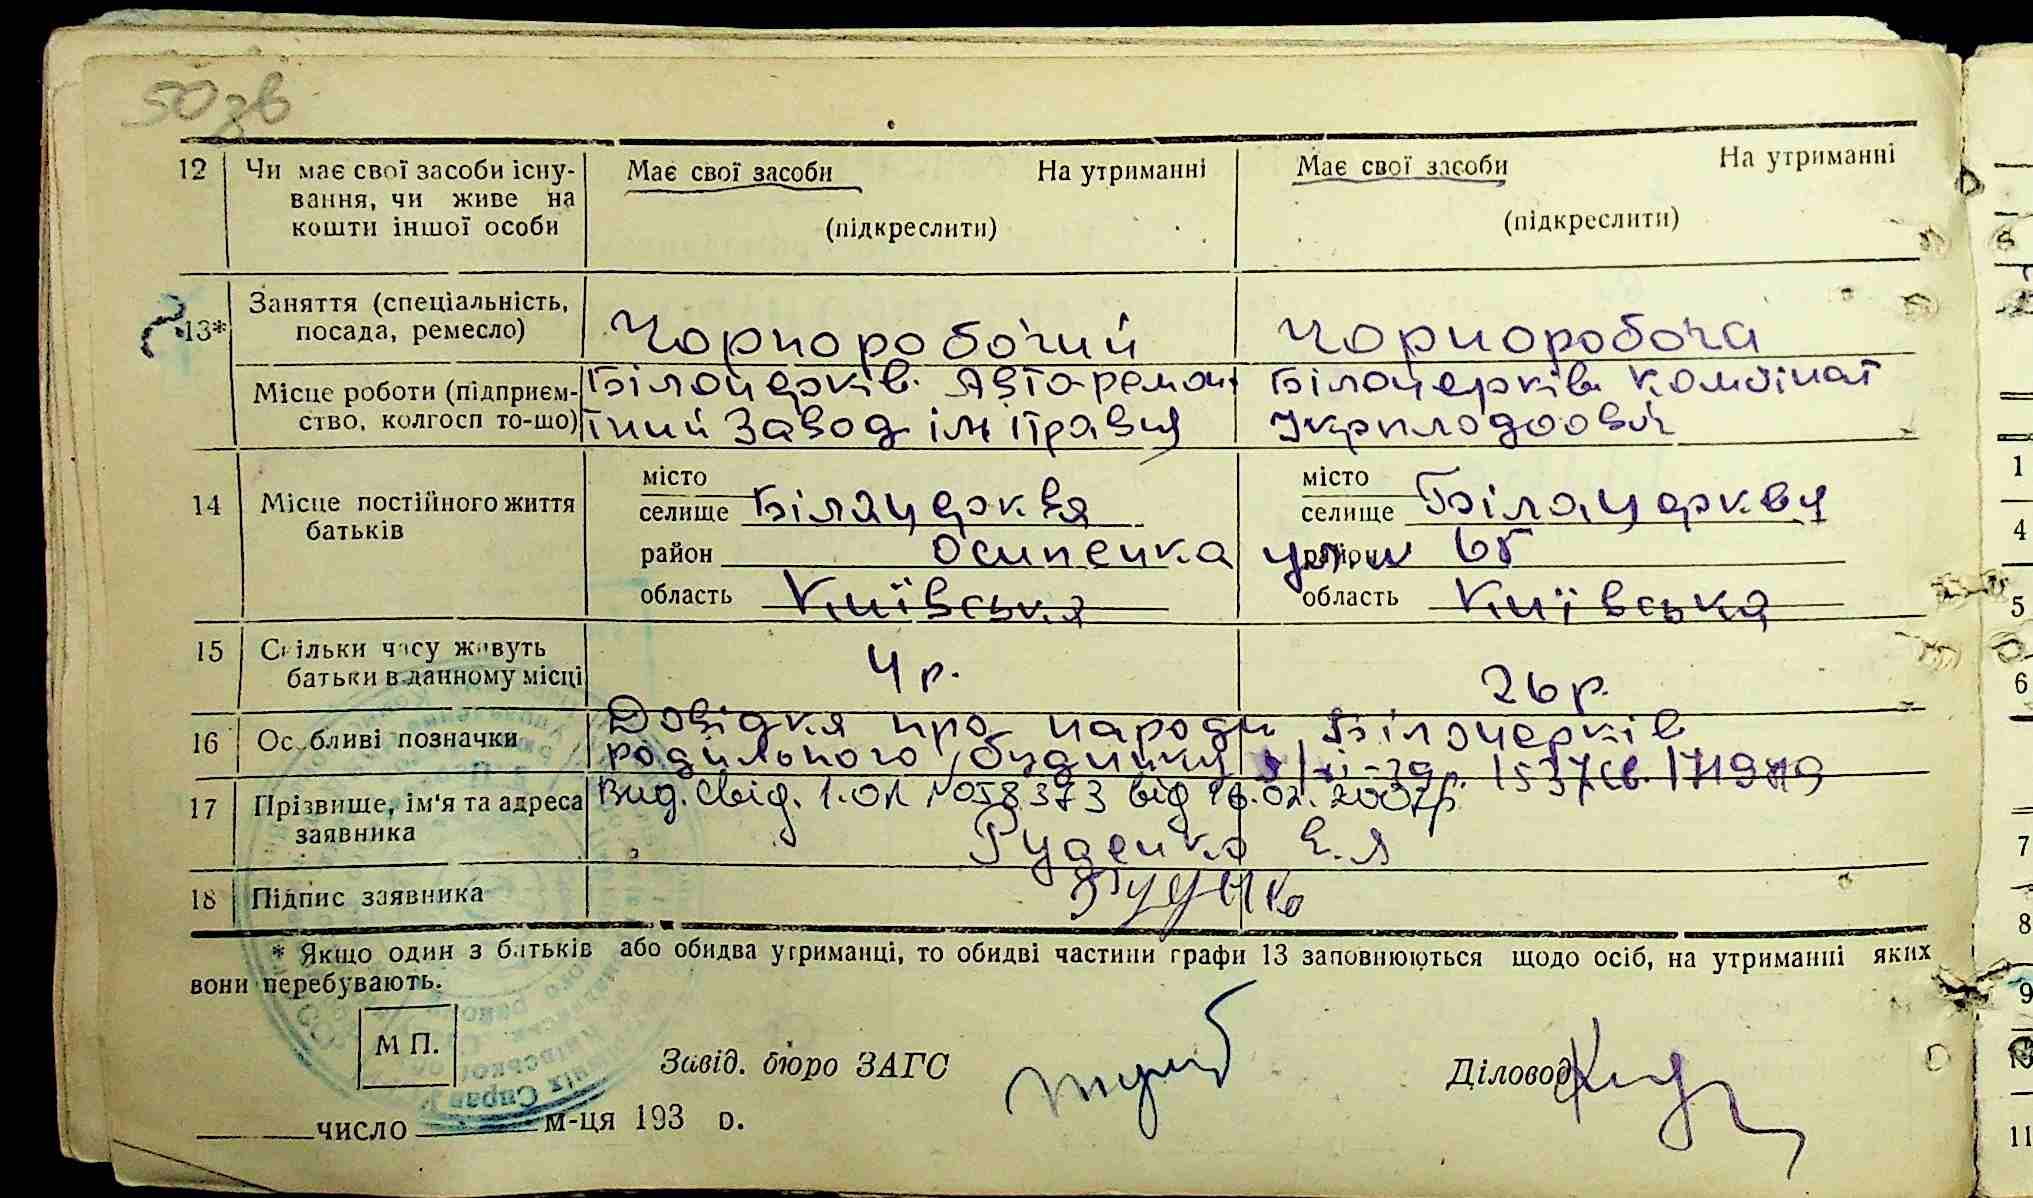 50 зв
12 Чи має свої засоби існування, чи живе на кошти іншої особи
Має свої засоби На утриманні Має свої засоби На утриманні
(підкреслити) (підкреслити)
13* Заняття (спеціальність, посада, ремесло)
Чорноробочий Чорноробоча
Місце роботи (підприєм-
ство, колгосп то-що)
Білоцерків. Авторемон
тний Завод ім Правди
Білоцерків Комбінат
Укрплодоовоч
14 Місце постійного життя батьків
місто місто
селище Білацерква селище Білацерква
район Осипенка район 65
область Київська область Київська
15 Скільки часу живуть
батьки в данному місці
4 р. 26 р.
16 Особливі позначки
Довідка про народж Білоцерків
родильного будинку
17 Прізвище, ім'я та адреса
заявника
Вид. Свід. 1-ОК №058373 від 16.02.2007р.
Руденко Е. Я
18 Підпис заявника
* Якщо один з батьків або обидва утриманці, то обидві частини графи 13 заповнюються щодо осіб, на утриманні яких
вони перебувають.
М П.
Завід. бюро ЗАГС Діловод
число м-ця 193 р.
1
4
5
6
7
8
9
10
11